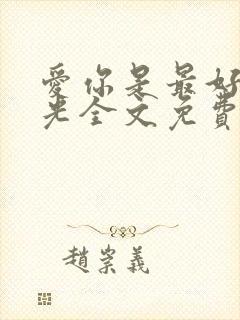 愛你是最好
光全文免費
趙崇義